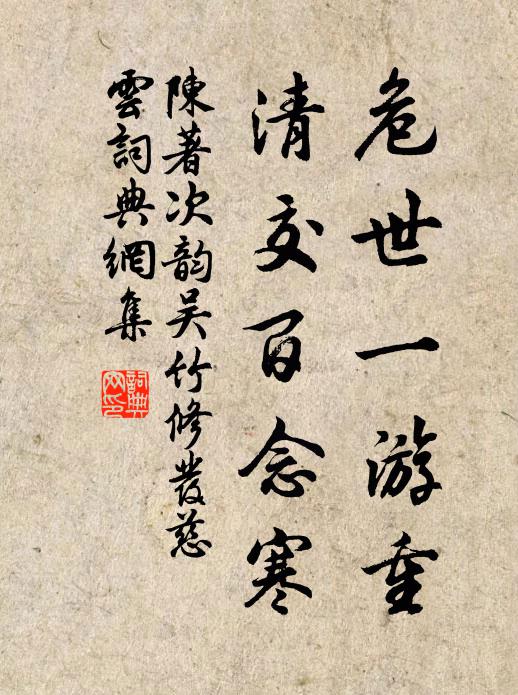 危世一游重
清交百念寒
陳著次韵吴竹修發慈
雲詞典網集
詞典
网印